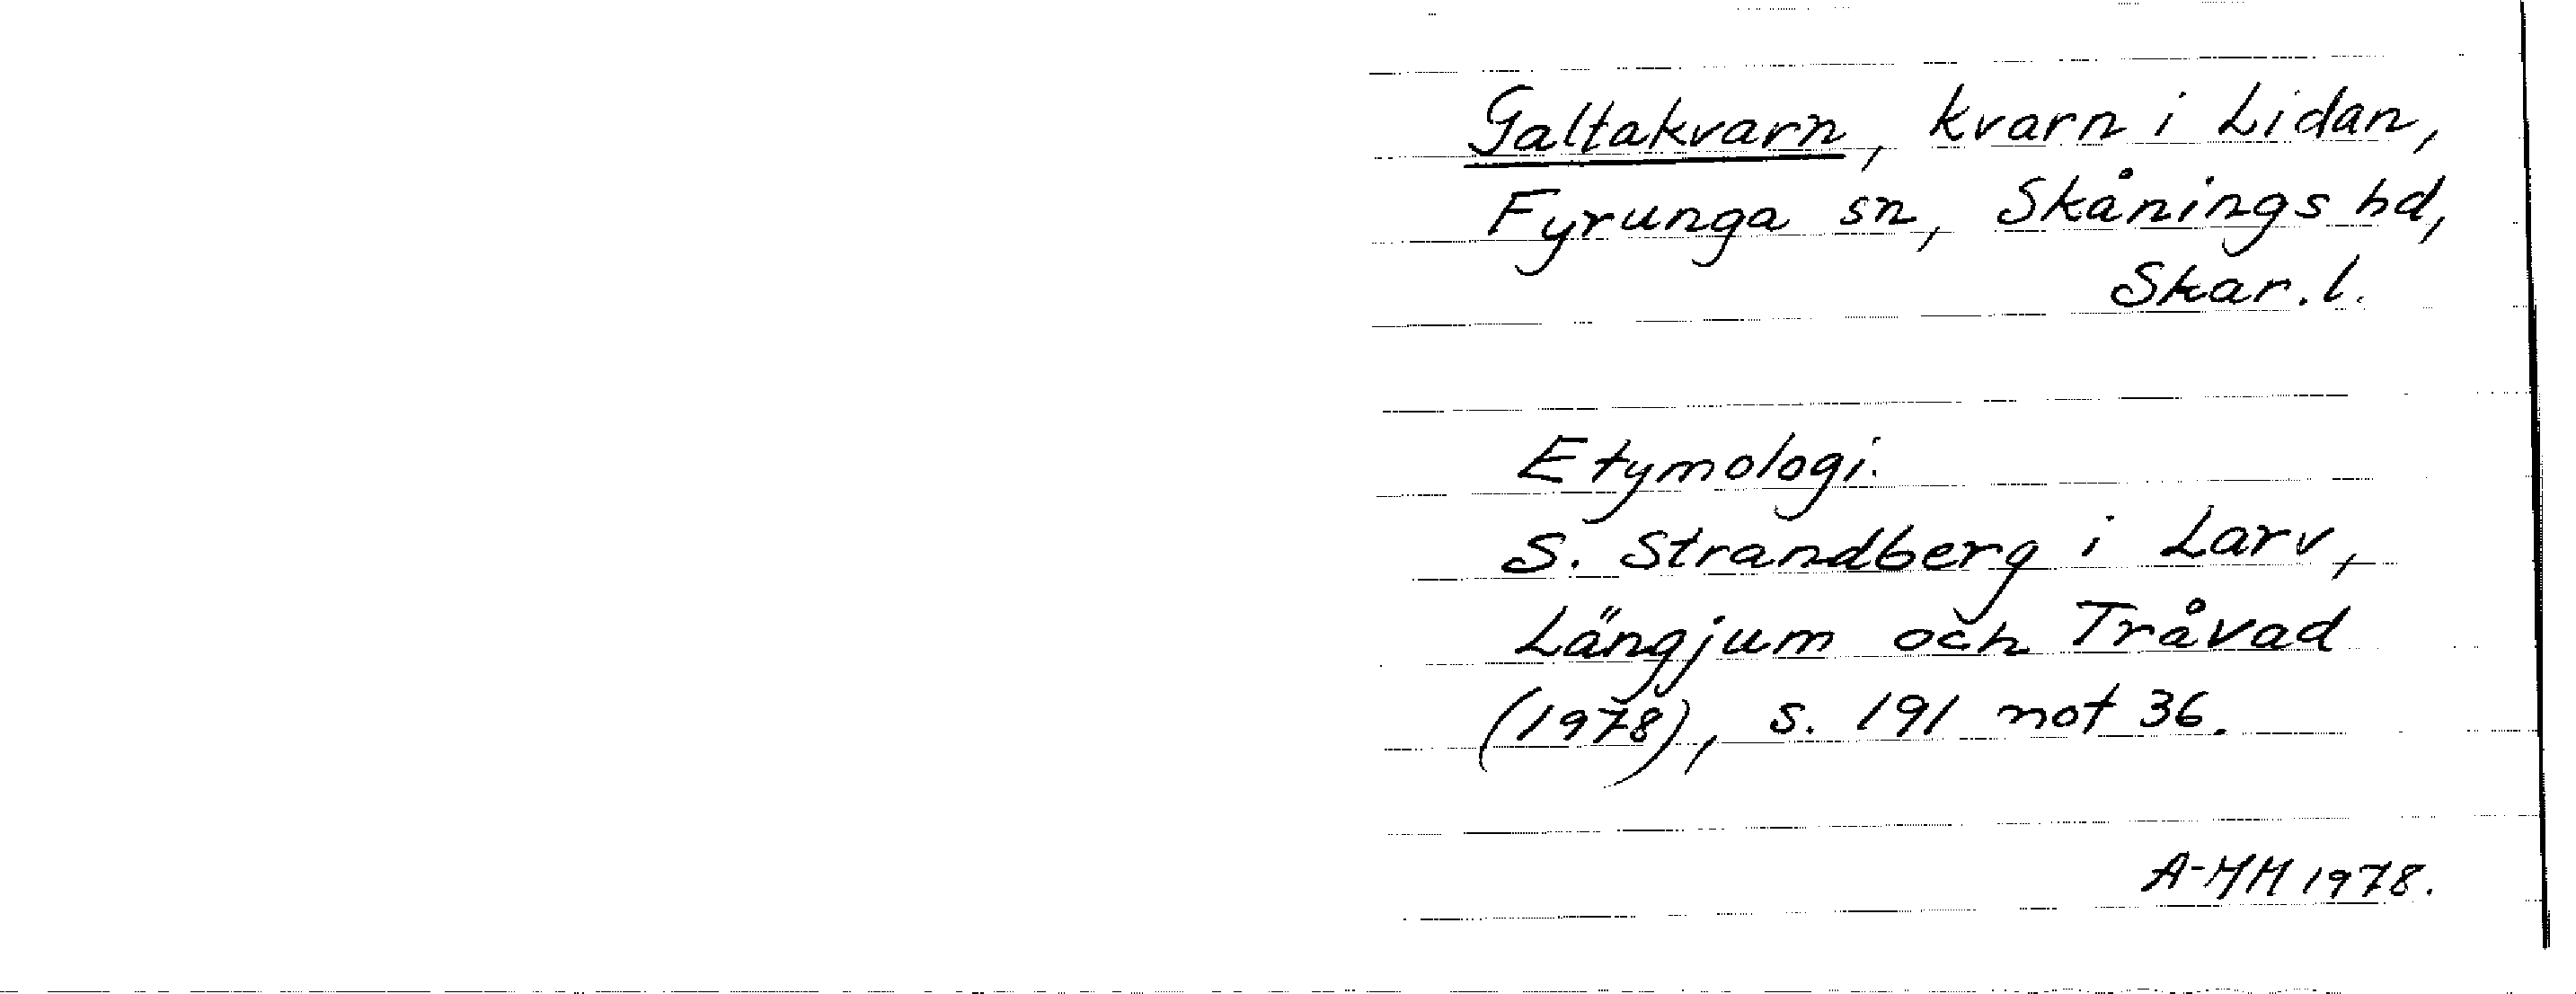 Galtakvarn, kvarn i Lidan,
Fyrunga sn, Skånings hd,
Skar. l.
Etymologi.
S. Strandberg i Larv,
Längjum och Tråvad
(1978), s. 191 not 36.
A-MM 1978.